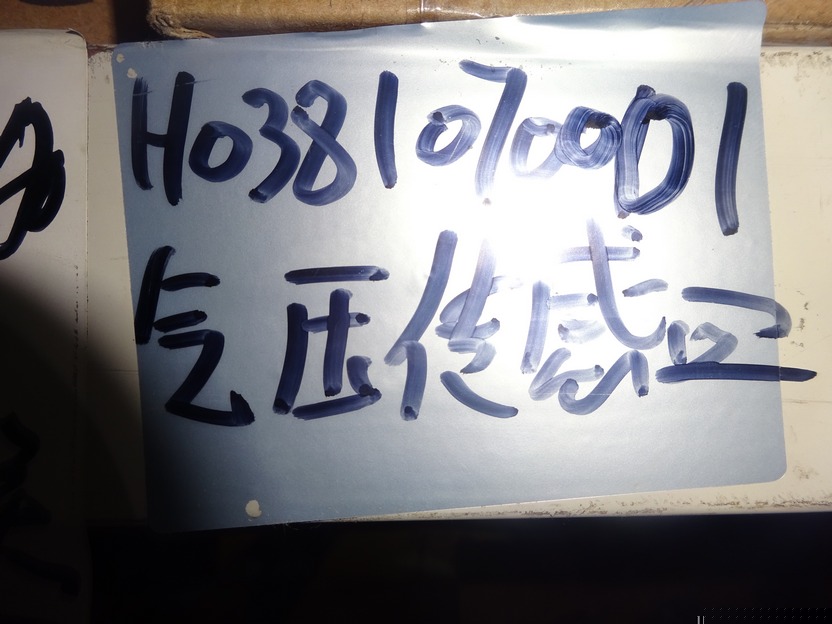 H0381070000D1
气压传感